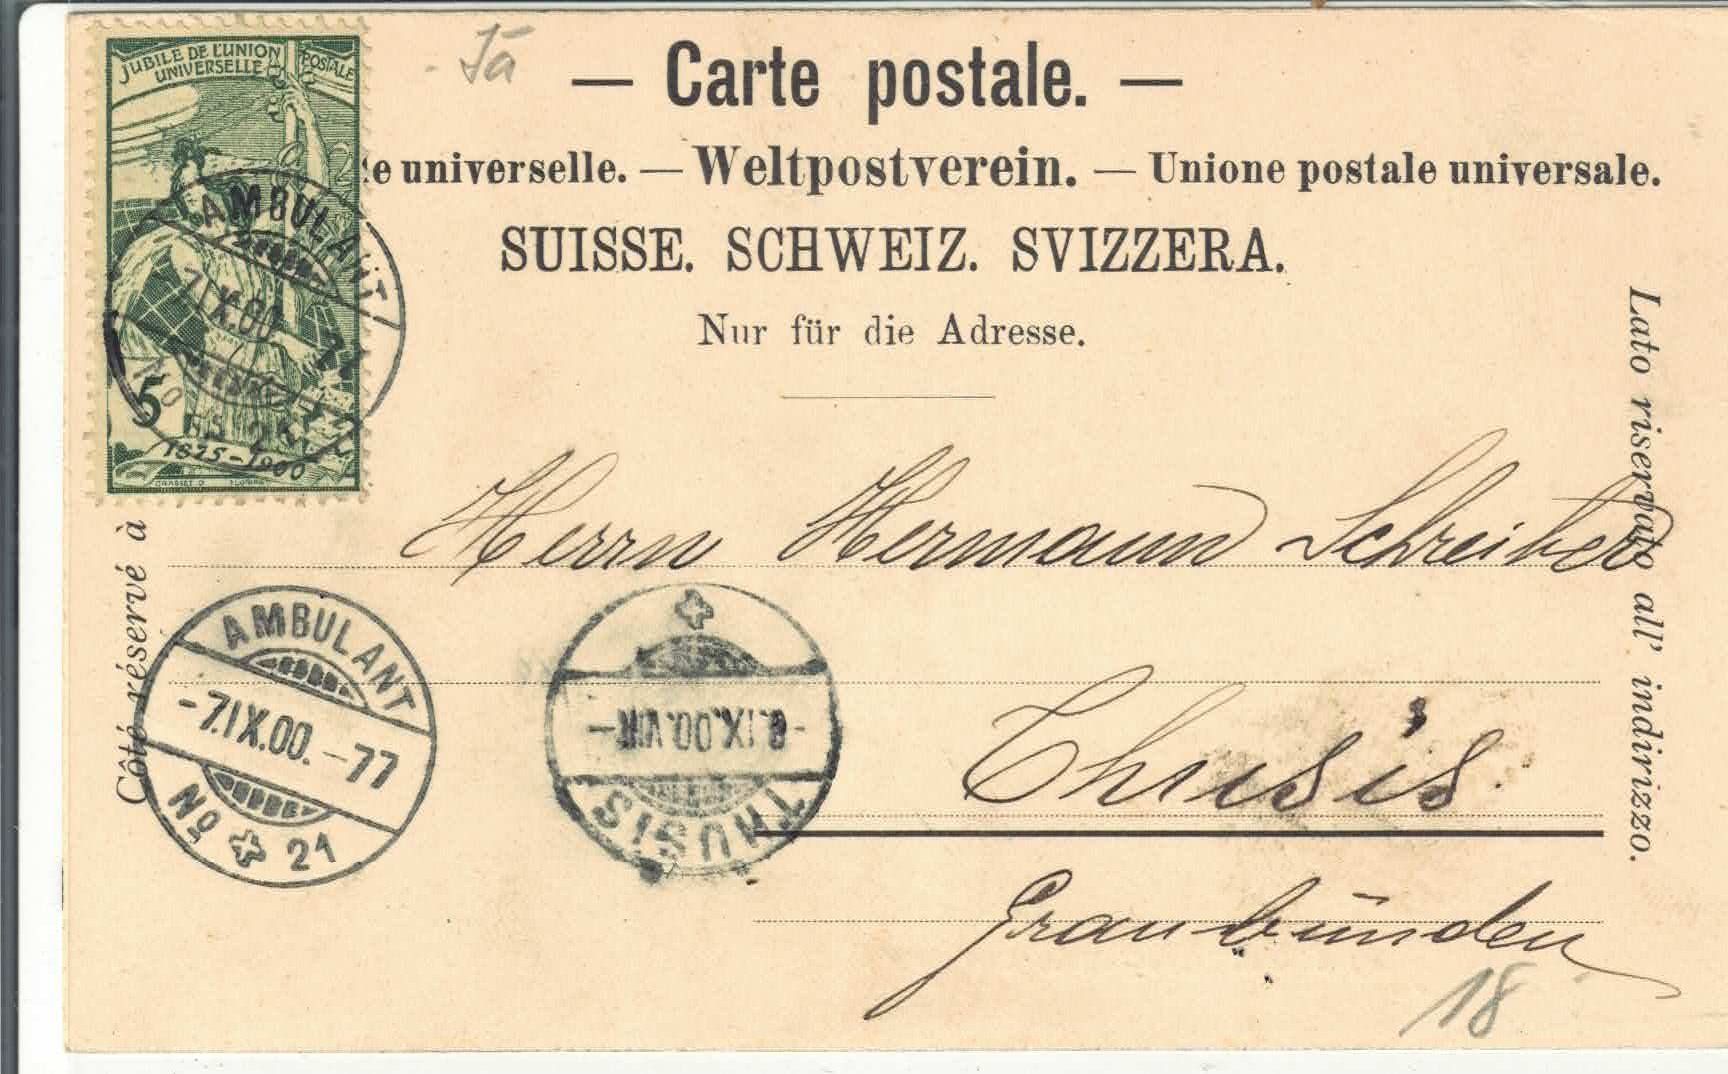 JUBILE DE L'UNION POSTALE
UNIVERSELLE
5
1875-1900
GRASSET
AMBULANT
7.IX.00
No
Tā
— Carte postale. —
e universelle. — Weltpostverein. — Unione postale universale.
SUISSE. SCHWEIZ. SVIZZERA.
Nur für die Adresse.
Côté réservé à
Lato riservato all' indirizzo.
Herrn Hermann Schreiber
Thusis
Graubünden
AMBULANT
-7.IX.00.-77
No 21
-8.IX.00.VIII-
THUSIS
18